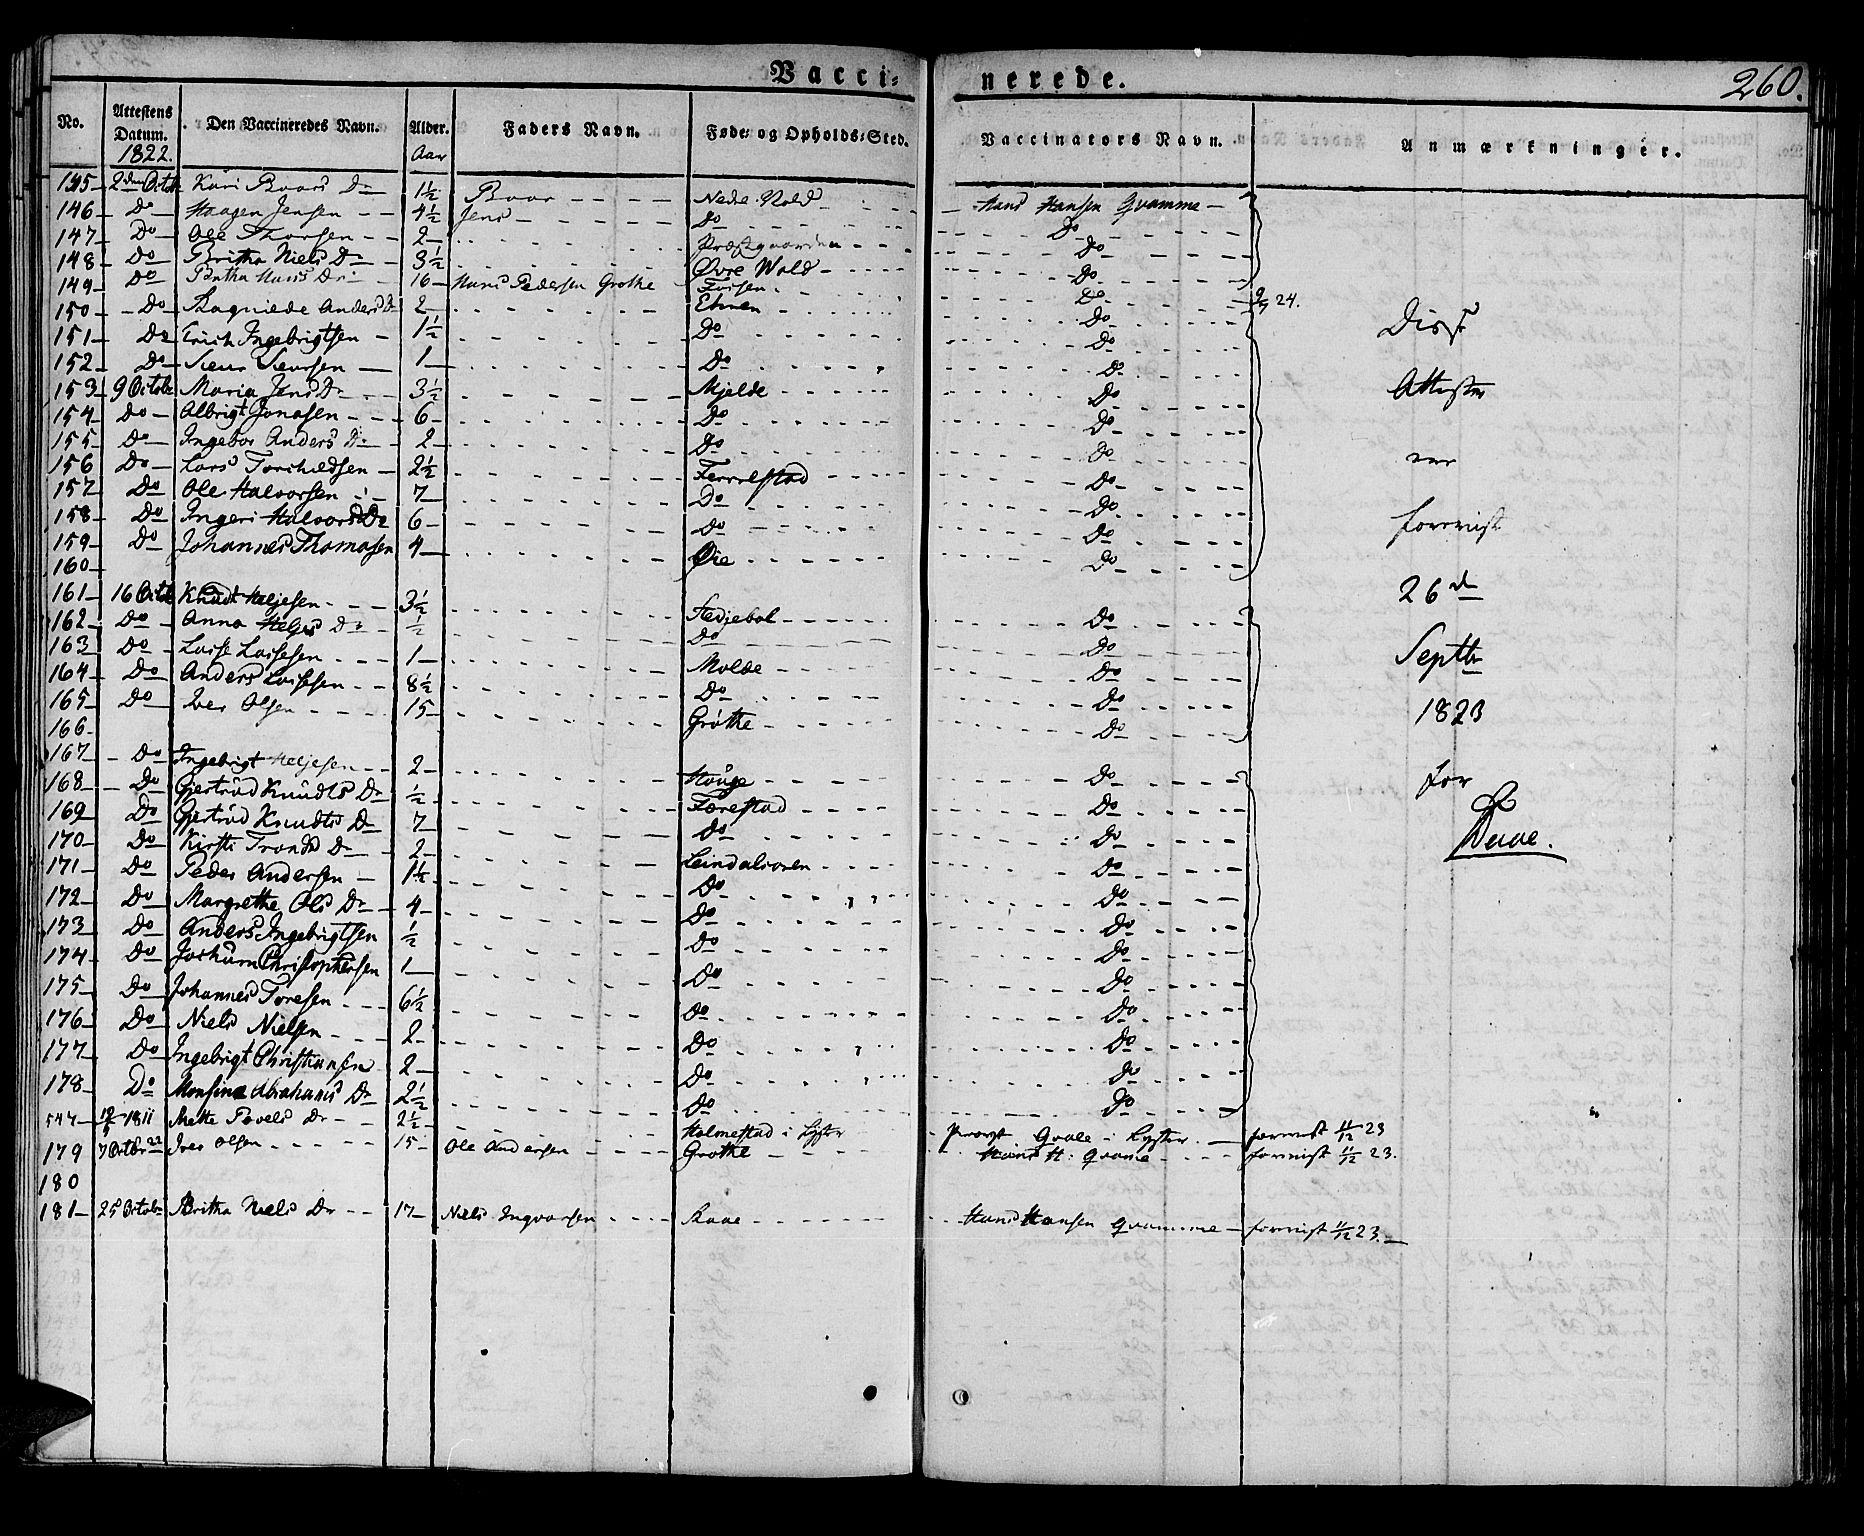 Vacci- nerede. 260.
No. Attestens Datum. 1822. Den Vaccineredes Navn. Alder. Aar Faders Navn. Føde- og Opholds-Sted. Vaccinators Navn. Anmærkninger.
145 2den Octob Kari Baars Dr 1½ Baar Nedre Vold Hans Hansen Qvamme
146 Do Haagen Jensen 4½ Jens Do Do
147 Do Ole Thorsen 2 Præstgaarden Do
148 Do Britha Niels Dr 3½ Øvre Wold Do
149 Do Britha Hans Dr 16 Hans Pedersen Grothe Do 24.
150 Do Ragnilde Anders Dr 2 Do
151 Do Erich Ingebrigtsen 1½ Do Do
152 Do Siur Siursen 1 Do Do
153 9 Octob Maria Jens Dr 3½ Mjelde Do
154 Do Albrigt Jonasen 6 Do Do
155 Do Ingebor Anders Dr 2 Do Do
156 Do Lars Torchildsen 2½ Ferrestad Do
157 Do Ole Halvorsen 7 Do Do
158 Do Ingeri Halvors Dr 6 Do Do
159 Do Johannes Thomasen 4 Øie Do
160
161 16 Octb Knudt Heljesen 3½ Stedjebol Do
162 Do Anna Heljes Dr ½ Do Do
163 Do Lasse Lassesen 1 Molde Do
164 Do Anders Lassesen 8½ Do Do
165 Do Iver Olsen 15 Grothe Do
166
167 Do Ingebrigt Heljesen 2 Houge Do
168 Do Gjertrud Knudts Dr ½ Ferestad Do
169 Do Gjertrud Knudts Dr 7 Do Do
170 Do Kirsti Tronds Dr 2 Leindalsoren Do
171 Do Peder Andersen 1½ Do Do
172 Do Margrethe Ols Dr 4 Do Do
173 Do Anders Ingebrigtsen ½ Do Do
174 Do Jochum Christophersen 1 Do Do
175 Do Johannes Toresen 6½ Do Do
176 Do Niels Nielsen 2 Do Do
177 Do Ingebrigt Christiansen 2 Do Do
178 Do Monsine Abrahams Dr 2½ Do Do
547 1811 Mette Povels Dr 2½ Holmestad i Lyster Provst Qvale i Lyster forevist 11/12 23
179 7 Octbr 22 Iver Olsen 15 Ole Andersen Grothe Hans H: Qvame forevist 11/12 23.
180
181 25 Octob Britha Niels Dr 17 Niels Ingvarsen Raae Hans Hansen Qvamme forevist 11/12 23.
Disse
Attester
ere
forevist
26de
Septbr
1823
for
Daae.